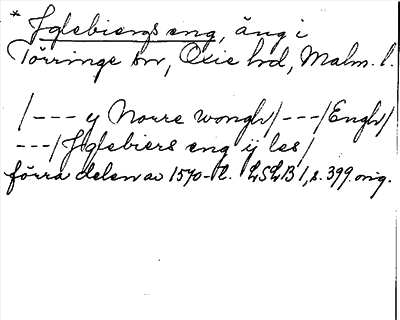 * Iglebiergs eng, äng i
Törringe sn, Oxie hd, Malm. l.
/--- y Norre wongh/---/Engh/
---/Iglebiers eng ij les/
förra delen av 1570-t. LSLB 1, s. 399. orig.